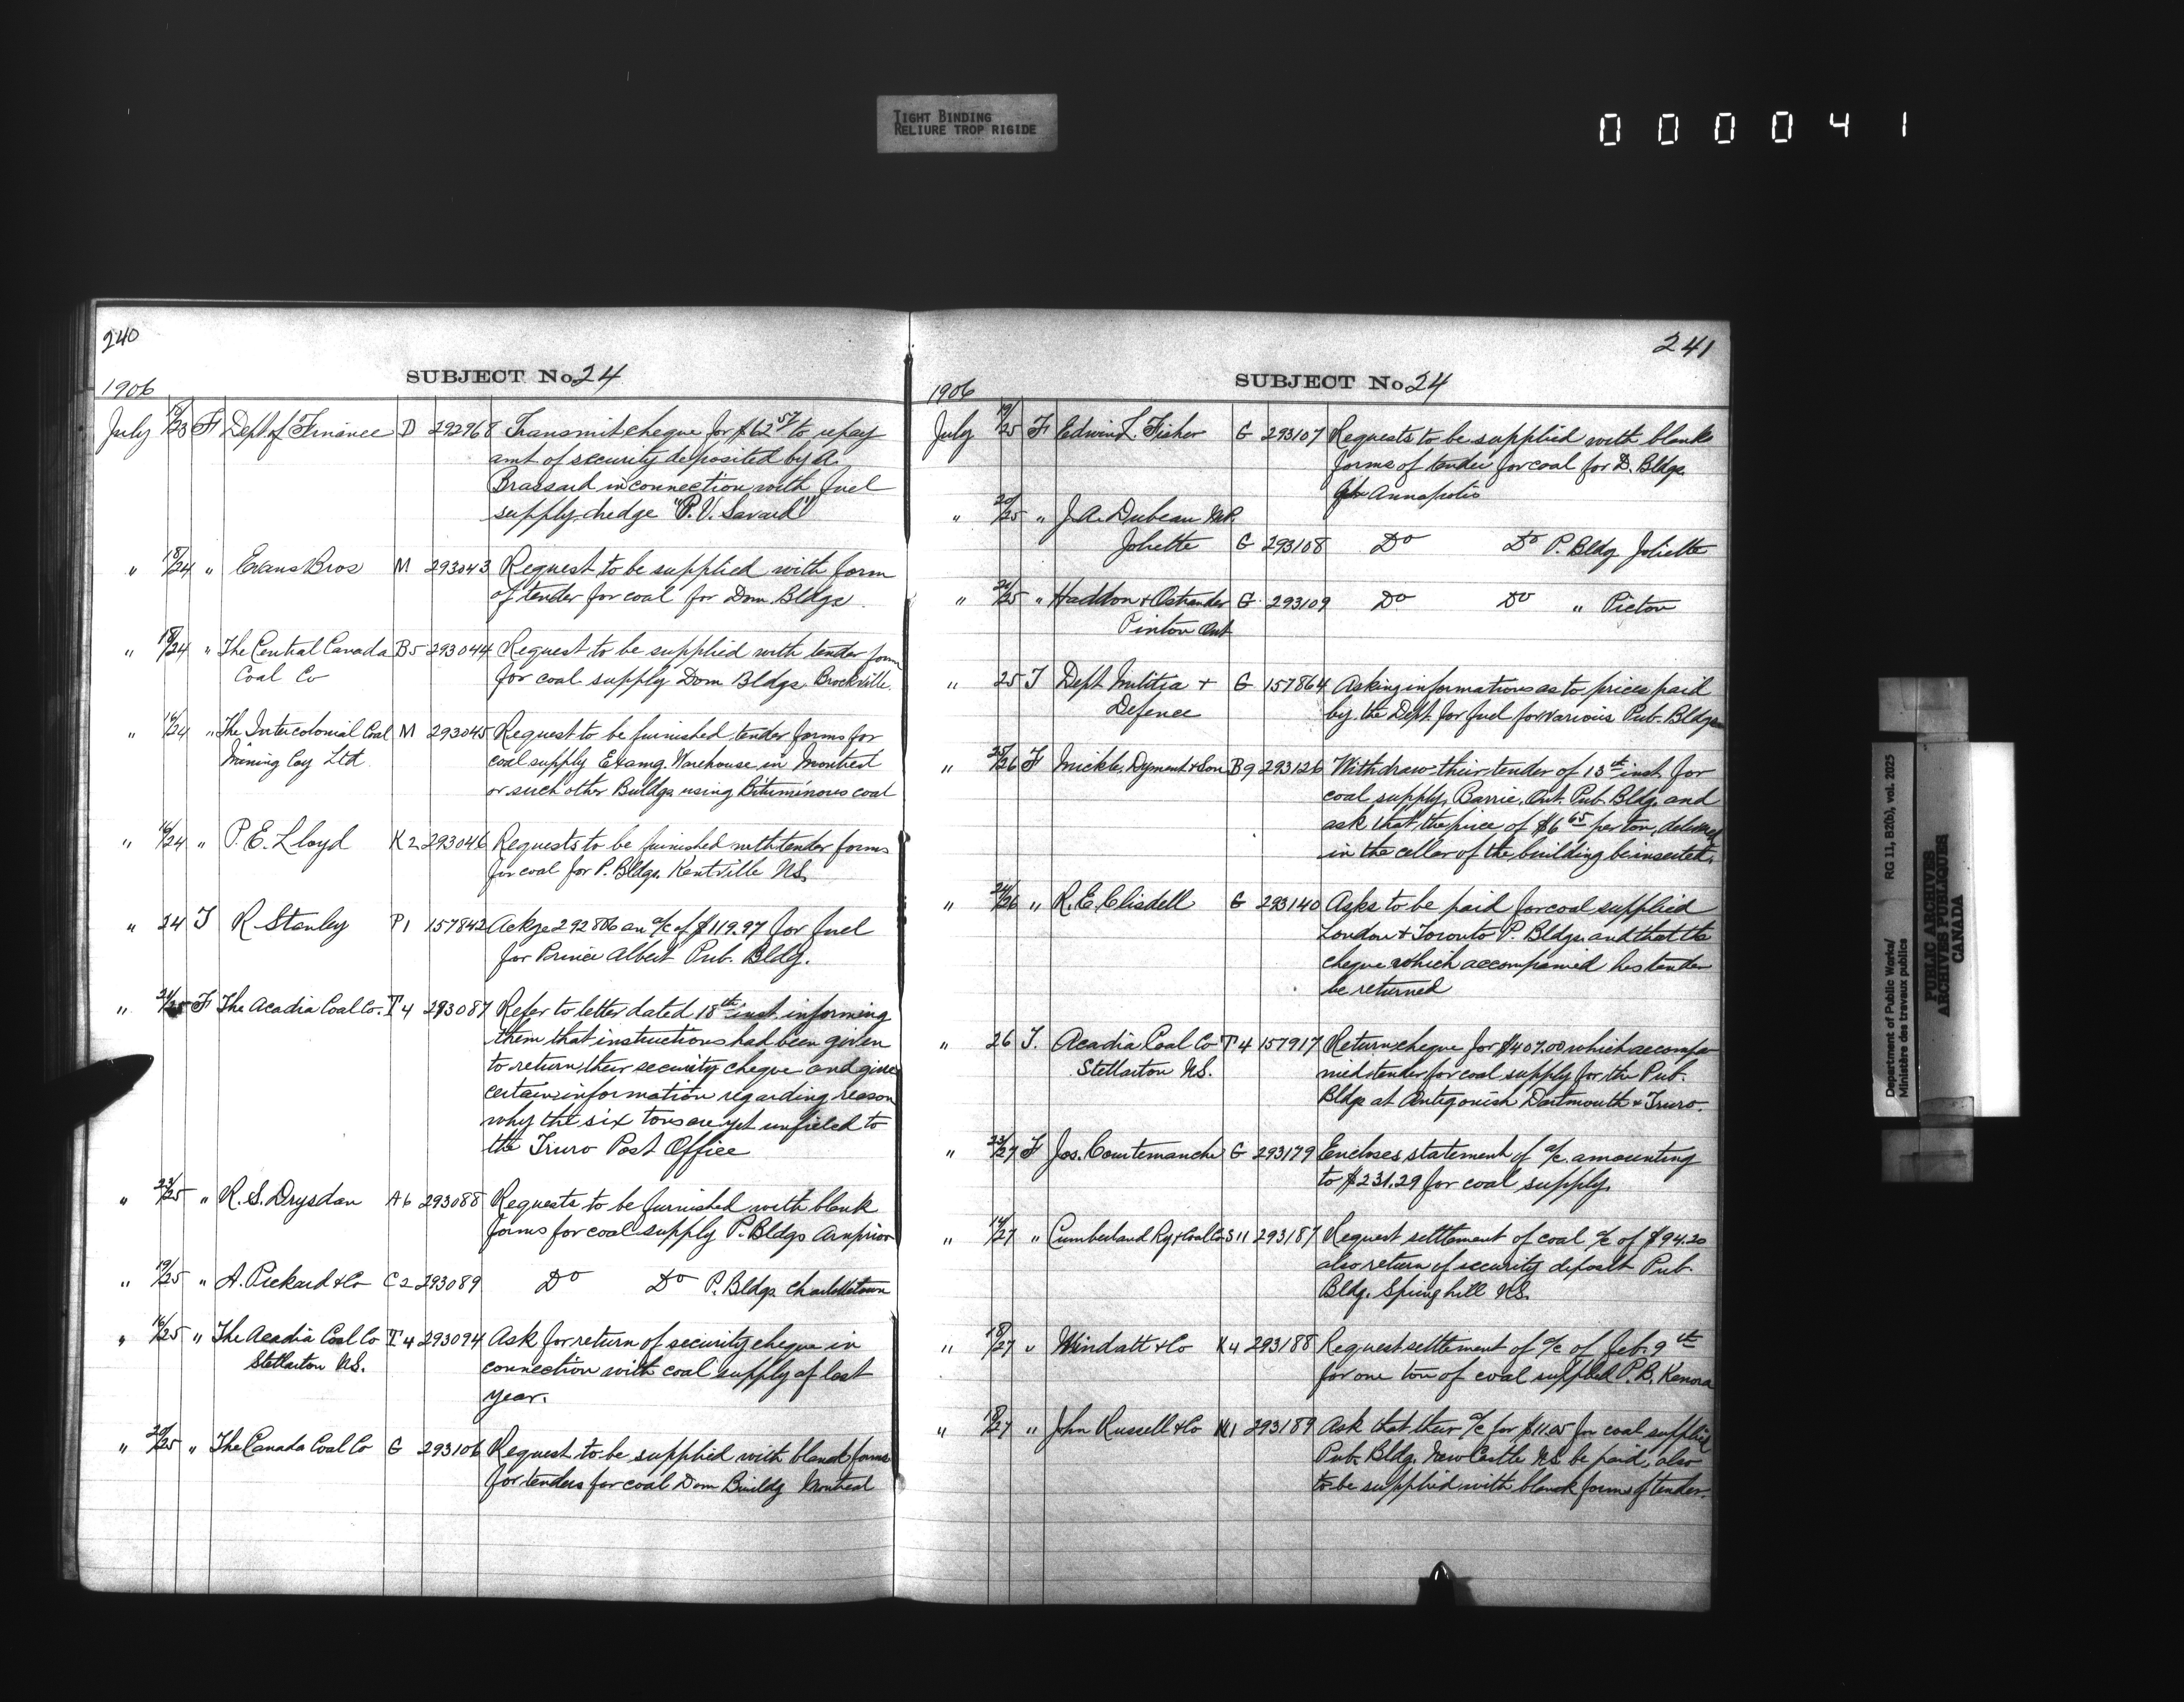 TIGHT BINDING
RELIURE TROP RIGIDE
000041
240
SUBJECT No. 24
1906
July 19/23 F Dept of Finance D 292968 Transmit cheque for $62.57 to repay
amt of security deposited by A.
Brassard in connection with fuel
supply dredge "P. V. Savard"
" 18/24 " Evans Bros M 293043 Request to be supplied with form
of tender for coal for Dom Bldgs.
" 18/24 " The Central Canada B5 293044 Request to be supplied with tender form
Coal Co for coal supply Dom Bldgs. Brockville.
" 16/24 " The Intercolonial Coal M 293045 Request to be furnished tender forms for
Mining Coy Ltd. coal supply Examg. Warehouse in Montreal
or such other Buldgs using Bituminous coal
" 16/24 " P. E. Lloyd K2 293046 Requests to be furnished with tender forms
for coal for P. Bldgs. Kentville NS.
" 24 T R Stanley P1 157842 Ackge 292806 an a/c of $119.97 for fuel
for Prince Albert Pub. Bldg.
" 21/25 F The Acadia Coal Co. T4 293087 Refer to letter dated 18th inst. informing
them that instructions had been given
to return their security cheque and give
certain information regarding reason
why the six tons are yet unfieled to
the Truro Post Office
" 23/25 " R. S. Drysdan A6 293088 Requests to be furnished with blank
forms for coal supply P. Bldgs Arnprior
" 19/25 " A. Pickard & Co C2 293089 Do Do P. Bldgs Charlottetown
" 16/25 " The Acadia Coal Co T4 293094 Ask for return of security cheque in
Stellarton NS. connection with coal supply of last
year.
" 20/25 " The Canada Coal Co G 293106 Request to be supplied with blank forms
for tenders for coal Dom Buildg Montreal
241
SUBJECT No. 24
1906
July 19/25 F Edwin L Fisher G 293107 Requests to be supplied with blank
forms of tender for coal for D. Bldgs
Annapolis
" 20/25 " J. A. Dubeau MP.
Joliette G 293108 Do Do P. Bldg Joliette
" 21/25 " Haddon & Ostrander G. 293109 Do Do " Picton
Pinton Ont
" 25 T Dept Militia + G 157864 Asking information as to prices paid
Defence by the Dept. for fuel for various Pub. Bldgs
" 25/26 F Mickle, Dyment & Son B9 293126 Withdraw their tender of 13th inst. for
coal supply, Barrie, Ont. Pub. Bldg. and
ask that the price of $6.65 per ton, delivered
in the cellar of the building be inserted.
" 24/26 " R. E. Clisdell G 293140 Asks to be paid for coal supplied
London & Toronto P. Bldgs. and that the
cheque which accompanied his tender
be returned
" 26 T. Acadia Coal Co T4 157917 Return cheque for $407.00 which accompa-
Stellarton N.S. nied tender for coal supply for the Pub.
Bldgs at Antigonish Dartmouth & Truro.
" 23/27 F Jos. Courtemanche G 293179 Encloses statement of a/c. amounting
to $231.29 for coal supply.
" 14/27 " Cumberland Ry & Coal Co S11 293187 Request settlement of coal a/c of $94.20
also return of security deposit Pub.
Bldg. Springhill NS.
" 18/27 " Windatt & Co K4 293188 Request settlement of a/c of Feb. 9th
for one ton of coal supplied P.B. Kenora
" 18/27 " John Russell & Co N1 293189 Ask that their a/c for $11.05 for coal supplied
Pub. Bldg. New Castle NS be paid, also
to be supplied with blank forms of tender.
Department of Public Works/ RG 11, B2(b), vol. 2025
Ministère des travaux publics
PUBLIC ARCHIVES
ARCHIVES PUBLIQUES
CANADA